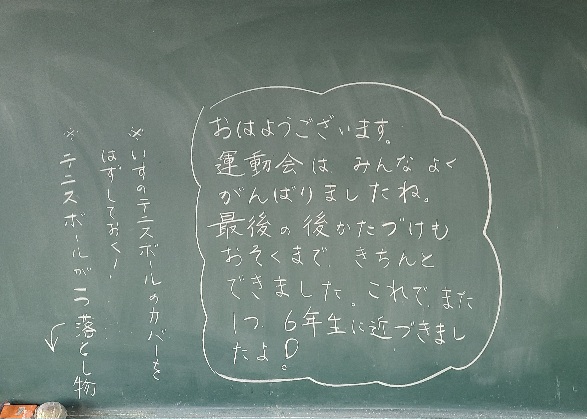 おはようございます。
運動会は みんな よく
がんばりましたね。
最後の後かたづけも
おそくまで、きちんと
できました。これで、また
1つ 6年生に近づきまし
たよ。
※いすのテニスボールのカバーを
はずしておく!
※テニスボールが一つ落とし物